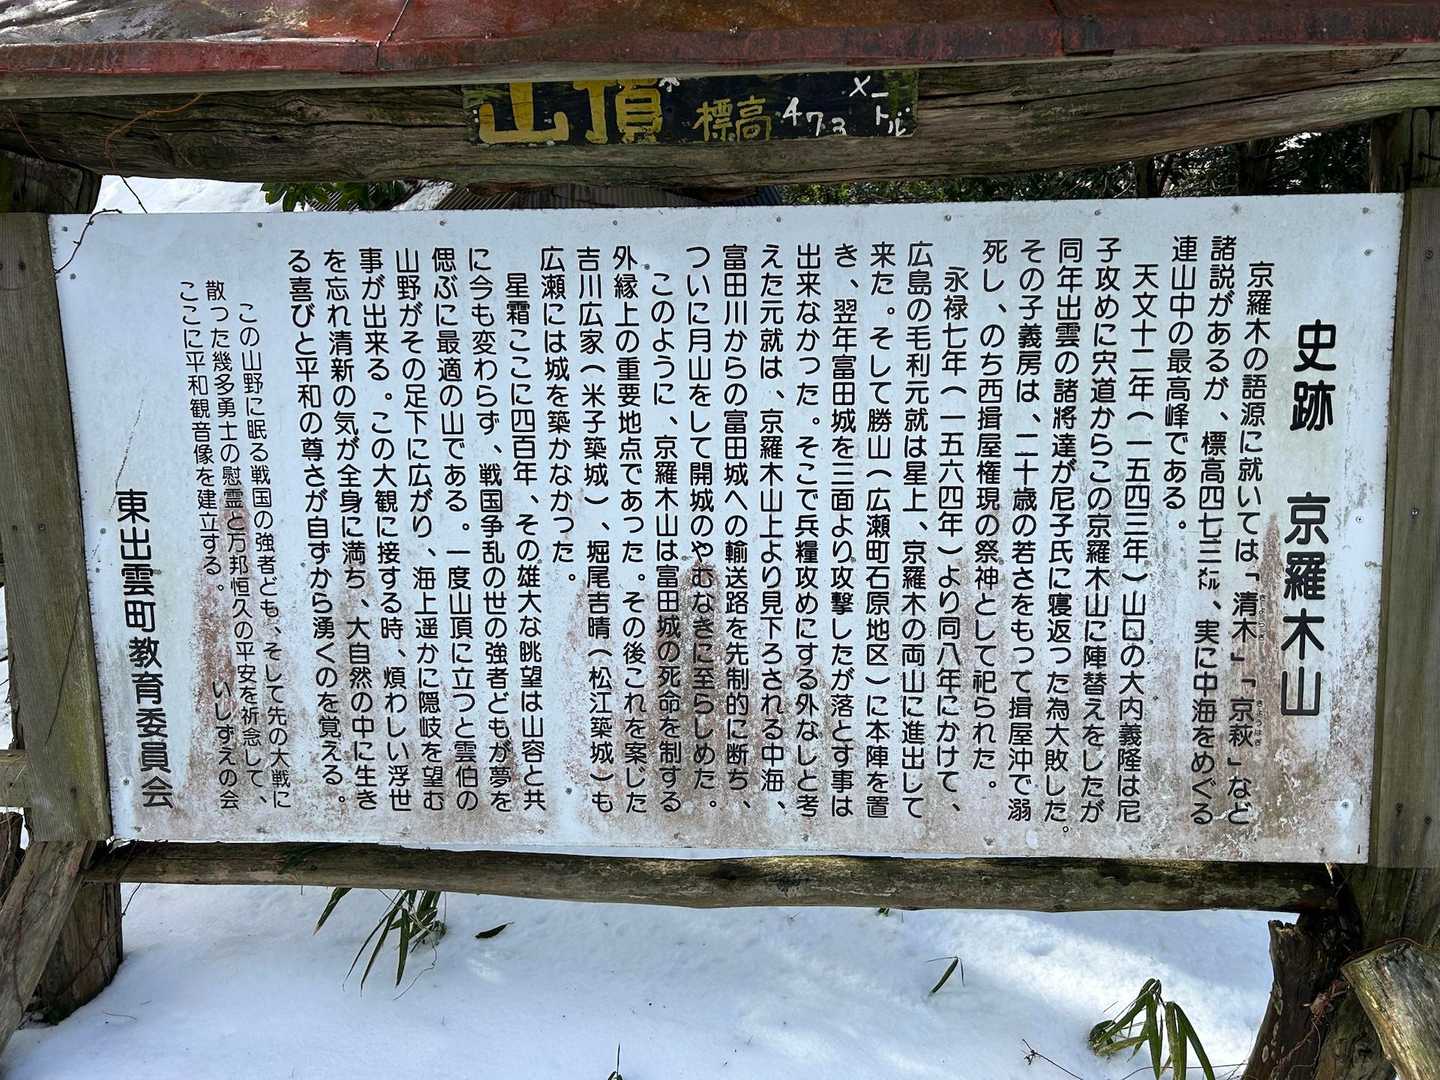 山頂 標高473メートル
史跡 京羅木山
京羅木の語源に就いては「清木」「京萩」など
諸説があるが、標高四七三㍍、実に中海をめぐる
連山中の最高峰である。
天文十二年（一五四三年）山口の大内義隆は尼
子攻めに宍道からこの京羅木山に陣替えをしたが
同年出雲の諸將達が尼子氏に寝返った為大敗した。
その子義房は、二十歳の若さをもって揖屋沖で溺
死し、のち西揖屋権現の祭神として祀られた。
永禄七年（一五六四年）より同八年にかけて、
広島の毛利元就は星上、京羅木の両山に進出して
来た。そして勝山（広瀬町石原地区）に本陣を置
き、翌年富田城を三面より攻撃したが落とす事は
出来なかった。そこで兵糧攻めにする外なしと考
えた元就は、京羅木山上より見下ろされる中海、
富田川からの富田城への輸送路を先制的に断ち、
ついに月山をして開城のやむなきに至らしめた。
このように、京羅木山は富田城の死命を制する
外縁上の重要地点であった。その後これを案じた
吉川広家（米子築城）、堀尾吉晴（松江築城）も
広瀬には城を築かなかった。
星霜ここに四百年、その雄大な眺望は山容と共
に今も変わらず、戦国争乱の世の強者どもが夢を
偲ぶに最適の山である。一度山頂に立つと雲伯の
山野がその足下に広がり、海上遥かに隠岐を望む
事が出来る。この大観に接する時、煩わしい浮世
を忘れ清新の気が全身に満ち、大自然の中に生き
る喜びと平和の尊さが自ずから湧くのを覚える。
この山野に眠る戦国の強者ども、そして先の大戦に
散った幾多勇士の慰霊と万邦恒久の平安を祈念して、
ここに平和観音像を建立する。 いしずえの会
東出雲町教育委員会